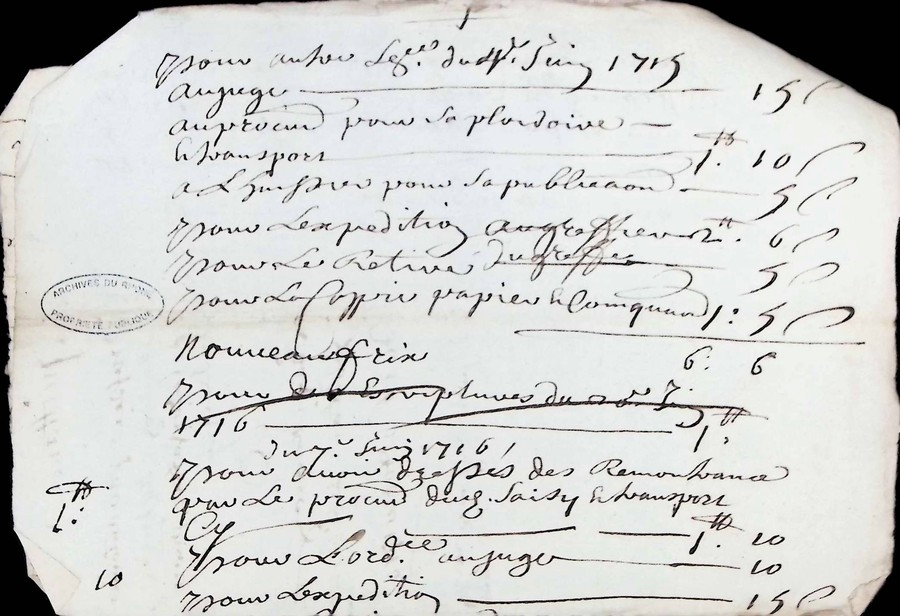 pour autre Lre du 4e Juin 1715
au juge 15 s
au procur pour sa plaidoirie
& transport 1 ₶ 10 s
a L huissier pour sa publicaon 5 s
pour Lexpedition au greffier 2 ₶ 6 s
pour Le Retire du greffe 5 s
pour La Coppie papier & Comquand 1 : 5 s
nouveau frix 6 : 6
pour des Escriptures du 20e J
1716 1 ₶
du 7e Juin 1716
pour avoir dressés des Remontrance
par Le procur dud. Saisy & transport
Cy 1 ₶ 10
1 ₶
pour L'ord.ce au juge 10
10
pour Lexpedition 15 s
ARCHIVES DU RHÔNE
PROPRIÉTÉ PUBLIQUE